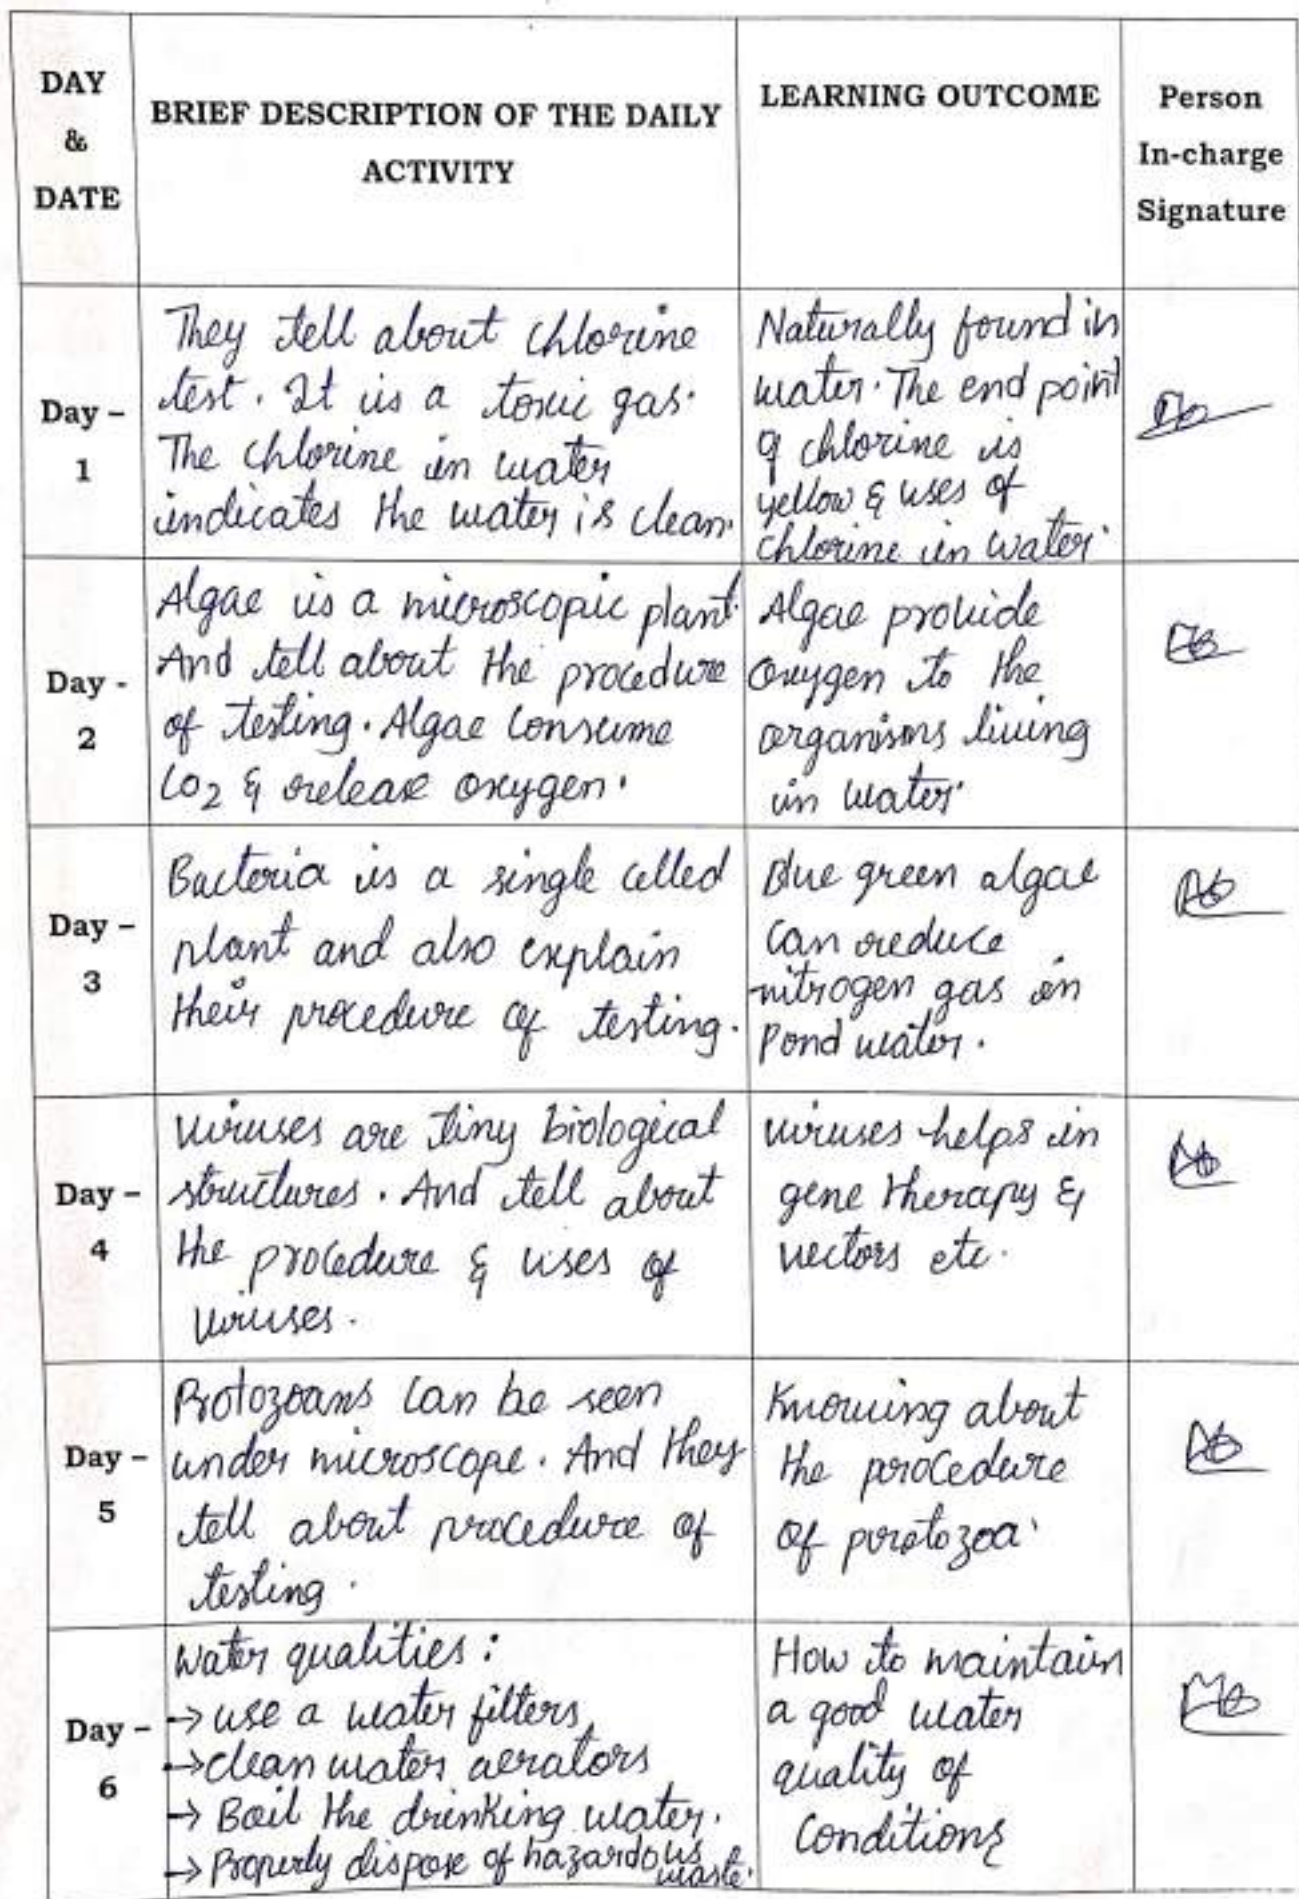 DAY
&
DATE
BRIEF DESCRIPTION OF THE DAILY
ACTIVITY
LEARNING OUTCOME
Person
In-charge
Signature
Day –
1
They tell about chlorine
test. It is a toxic gas.
The chlorine in water
indicates the water is clean.
Naturally found in
water. The end point
of chlorine is
yellow & uses of
chlorine in water.
Day -
2
Algae is a microscopic plant.
And tell about the procedure
of testing. Algae consume
CO2 & release oxygen.
Algae provide
oxygen to the
organisms living
in water.
Day –
3
Bacteria is a single celled
plant and also explain
their procedure of testing.
Blue green algae
can reduce
nitrogen gas in
Pond water.
Day –
4
Viruses are tiny biological
structures. And tell about
the procedure & uses of
viruses.
viruses helps in
gene therapy &
vectors etc.
Day –
5
Protozoans can be seen
under microscope. And they
tell about procedure of
testing.
Knowing about
the procedure
of protozoa.
Day –
6
Water qualities:
→ use a water filters
→ clean water aerators
→ Boil the drinking water.
→ Properly dispose of hazardous waste.
How to maintain
a good water
quality of
Conditions